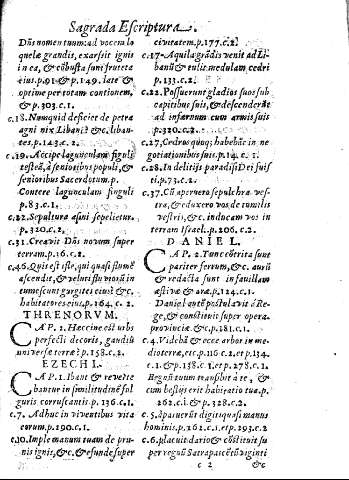 Sagrada Escriptura.
Dñs nomen tuum: ad vocem lo
quelæ grandis, exarsit ignis
in ea, & cõbusta sunt fruteta
eius. p. 91 & p. 149. late &
optime per totam contionem,
& p. 303. c. 1.
c. 18. Nunquid deficiet de petra
agni nix Libani? &c. liban-
tes. p. 143. c. 2.
c. 19. Accipe lagunculam figuli
testeã, à senioribus populi, &
senioribus Sacerdotum. p.
Contere lagunculam finguli
p. 83. c. 1.
c. 22. Sepultura asini sepelietur.
p. 320. c. 2.
c. 31. Creavit Dñs novum super
terram. p. 16. c. 2.
c. 46. Quis est iste, qui quasi flumẽ
ascendit, & velut fluviorũ in
tumescunt gurgites eius? &c.
habitatores eius, p. 164. c. 2.
THRENORVM.
CAP. 2. Hæccine est urbs
perfecti decoris, gaudiũ
universæ terræ? p. 158. c. 2.
EZECHI.
CAP. 1. Ibant & reverte
bantur in similitudinẽ ful
guris corruscantis. p. 136. c. 1.
c. 7. Adhuc in viventibus vita
eorum. p. 190. c. 1.
c. 10. Imple manum tuam de pru-
nis ignis, &c. & refunde super
civitatem. p. 177. c. 2.
c. 17. Aquila grãdis venit ad Li-
banũ & tulit medulam cedri
p. 133. c. 2.
c. 22. Possuerunt gladios suos sub
capitibus suis, & descenderũt
ad infernum cum armis suis
p. 320. c. 2.
c. 27. Cedrus quoq; habebãt in ne
gotiationibus suis. p. 14. c. 2.
c. 28. In delitijs paradisi Dei fuis
ti. p. 73. c. 2.
c. 37. Cũ aperuero sepulchra ves-
tra, & eduxero vos de tumilis
vestris, &c. inducam vos in
terram Israel. p. 206. c. 2.
DANIEL.
CAP. 2. Tunc cõtrita sunt
pariter ferrum, &c. aurũ
& redacta sunt in favillam
æstivæ & aræ, p. 124. c. 1.
Daniel autẽ postulavit à Re-
ge, & constituit super opera.
provinciæ &c. p. 181. c. 1.
c. 4. Videbã & ecce arbor in me-
dio terræ, etc. p. 116. c. 2. et p. 134.
c. 1. & p. 138. c. 1. et p. 278. c. 1.
Regnũ tuum transibit à te, &
cum bestijs erit habitatio tua. p.
262. c. 1. & p. 328. c. 2.
c. 5. Apparuerũt digiti quasi manus
hominis, p. 262. c. 1. etc p. 293. c. 2
c. 6. placuit dario & cõstituit su
per regnũ Satrapas cẽtũ viginti
c 2
&c